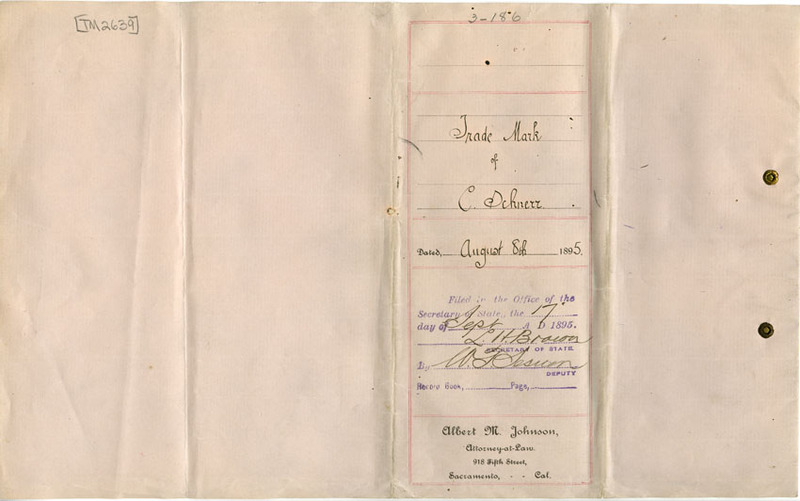 TM2639
3-186
Trade Mark
of
C. Schnerr
Dated, August 8th 1895.
Filed in the Office of the
Secretary of State, the 17
day of Sept A. D 1895.
L. H. Brown
SECRETARY OF STATE.
By W. T. Sesnon
DEPUTY
Record Book, Page,
Albert M. Johnson,
Attorney-at-Law.
918 Fifth Street,
Sacramento, - - Cal.